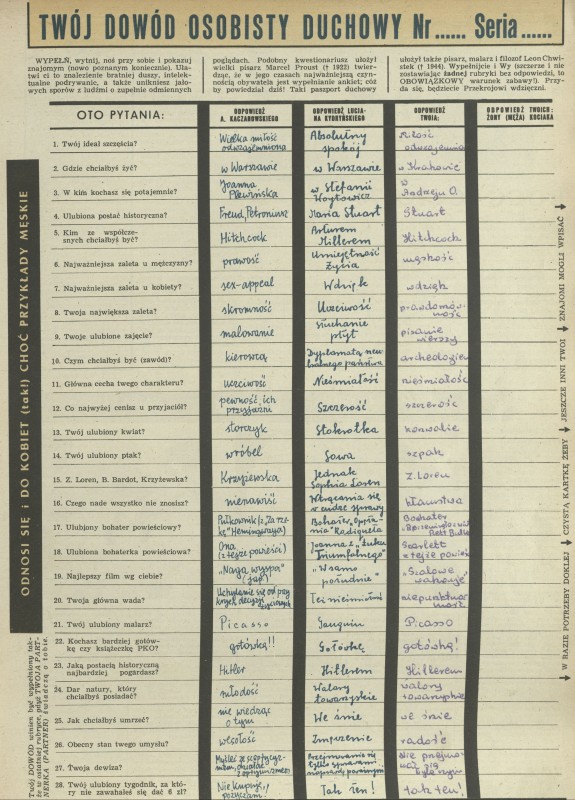 TWÓJ DOWÓD OSOBISTY DUCHOWY Nr...... Seria......
WYPEŁŃ, wytnij, noś przy sobie i pokazuj
znajomym (nowo poznanym koniecznie). Uła-
twi ci to znalezienie bratniej duszy, intelek-
tualne podrywanie, a także unikniesz jało-
wych sporów z ludźmi o zupełnie odmiennych
poglądach. Podobny kwestionariusz ułożył
wielki pisarz Marcel Proust († 1922) twier-
dząc, że w jego czasach najważniejszą czyn-
nością obywatela jest wypełnianie ankiet; cóż
by powiedział dziś! Taki paszport duchowy
ułożył także pisarz, malarz i filozof Leon Chwi-
stek († 1944). Wypełnijcie i Wy (szczerze i nie
zostawiając żadnej rubryki bez odpowiedzi, to
OBOWIĄZKOWY warunek zabawy!). Przy-
da się, będziecie Przekrojowi wdzięczni.
OTO PYTANIA:
ODPOWIEDŹ
A. KACZAROWSKIEGO
ODPOWIEDŹ LUCJA-
NA KYDRYŃSKIEGO
ODPOWIEDŹ
TWOJA:
ODPOWIEDŹ TWOICH:
ŻONY (MĘŻA) KOCIAKA
1. Twój ideał szczęścia? Wielka miłość odwzajemniona Absolutny spokój miłość
2. Gdzie chciałbyś żyć? w Warszawie w Warszawie w Krakowie
3. W kim kochasz się potajemnie? Joanna w Stefanii Woytowicz w Andrzeju O.
4. Ulubiona postać historyczna? Freud, Petroniusz Maria Stuart Stuart
5. Kim ze współcze-
snych chciałbyś być? Hitchcock Arturem Millerem Hitchcock
6. Najważniejsza zaleta u mężczyzny? prawość Umiejętność życia męskość
7. Najważniejsza zaleta u kobiety? sex-appeal Wdzięk wdzięk
8. Twoja największa zaleta? skromność Uczciwość prawdomówność
9. Twoje ulubione zajęcie? malowanie Słuchanie płyt pisanie wierszy
10. Czym chciałbyś być (zawód)? kierowcą Dyplomatą neutralnego państwa archeologiem
11. Główna cecha twego charakteru? uczciwość Nieśmiałość nieśmiałość
12. Co najwyżej cenisz u przyjaciół? pewność ich przyjaźni Szczerość szczerość
13. Twój ulubiony kwiat? storczyk Stokrotka konwalie
14. Twój ulubiony ptak? wróbel Sowa szpak
15. Z. Loren, B. Bardot, Krzyżewska? Krzyżewska Jednak Sophia Loren Z. Loren
16. Czego nade wszystko nie znosisz? nienawiść Wtrącania się w cudze sprawy kłamstwa
17. Ulubiony bohater powieściowy? Pułkownik (z „Za rzekę" Hemingwaya) Bohater „Opętania" Radigueta Bohater Rett Butler
18. Ulubiona bohaterka powieściowa? Ona (z tejże powieści) Joanna z „Łuku Triumfalnego" Scarlett z tejże powieści
19. Najlepszy film wg ciebie? „Naga wyspa" (jap.) „W samo południe" „Szalowe
20. Twoja główna wada? Uchylanie się od przykrych decyzji życiowych Też nieśmiałość niepunktualność
21. Twój ulubiony malarz? Picasso Gauguin Picasso
22. Kochasz bardziej gotów-
kę czy książeczkę PKO? gotówkę!! Gotówkę gotówkę!
23. Jaką postacią historyczną
najbardziej pogardzasz? Hitler Hitlerem Hitlerem
24. Dar natury, który
chciałbyś posiadać? młodość Walory towarzyskie walory towarzyskie
25. Jak chciałbyś umrzeć? nie wiedząc o tym We śnie we śnie
26. Obecny stan twego umysłu? wesołość Zmęczenie radość
27. Twoja dewiza? Myśleć ze sceptycyzmem, działać z optymizmem Przejmowanie się tylko sprawami naprawdę poważnymi Nie przejmować się byle czym
28. Twój ulubiony tygodnik, za któ-
ry nie zawahałeś się dać 6 zł? Nie kupuję, pożyczam. Tak ten! Tak ten!
ODNOSI SIĘ i DO KOBIET (tak!) CHOĆ PRZYKŁADY MĘSKIE
Twój DOWÓD winien być wypełniony tak-
że w ostatniej rubryce, gdyż TWOJA PART-
NERKA (PARTNER) świadczą o tobie.
W RAZIE POTRZEBY DOKLEJ → CZYSTĄ KARTKĘ ŻEBY → JESZCZE INNI TWOI → ZNAJOMI MOGLI WPISAĆ →